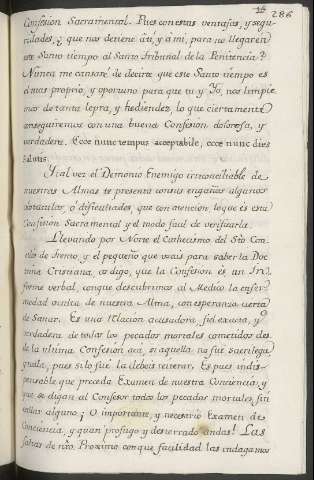 16
286
Confesion Sacramental. Pues con estas ventajas, y segu-
ridades, ¿ que nos detiene á ti, y á mi, para no llegar en
este Santo tiempo al Santo Tribunal de la Penitencia?
Nunca me cansaré de decirte que este Santo tiempo es
el mas proprio, y oportuno para que tu y Yo, nos limpie-
mos de tanta lepra, y hediendez, lo que ciertamente
conseguiremos con una buena Confesion dolorosa, y
verdadera. Ecce nunc tempus acceptabile, ecce nunc dies
salutis.
Y si al vez el Demonio Enemigo irreconciliable de
nuestras Almas te presenta con sus engaños algunos
obstaculos, ó dificultades, que con atencion, lo que es esta
Confesion Sacramental y el modo facil de verificarla.
Llevando por Norte el Cathecismo del Sto Con-
cilio de Trento, y el pequeño que usais para saber la Doc-
trina Cristiana, os digo, que la Confesion es un In-
forme verbal, con que descubrimos al Medico la enfer-
medad oculta de nuestra Alma, con esperanza cierta
de Sanar. Es una Relacion acusadora, fiel exacta, y
verdadera de todos los pecados mortales cometidos des-
de la ultima Confesion acá, si aquella no fue sacrilega
ó nula, pues si lo fué la debeis reiterar. Es pues indis-
pensable que preceda Examen de nuestra Conciencia, y
que se digan al Confesor todos los pecados mortales, sin
callar alguno ¡ O importante, y necesario Examen de
Conciencia, y quan profugo y desterrado andas! Las
faltas de nro. Proximo con que facilidad las indagamos